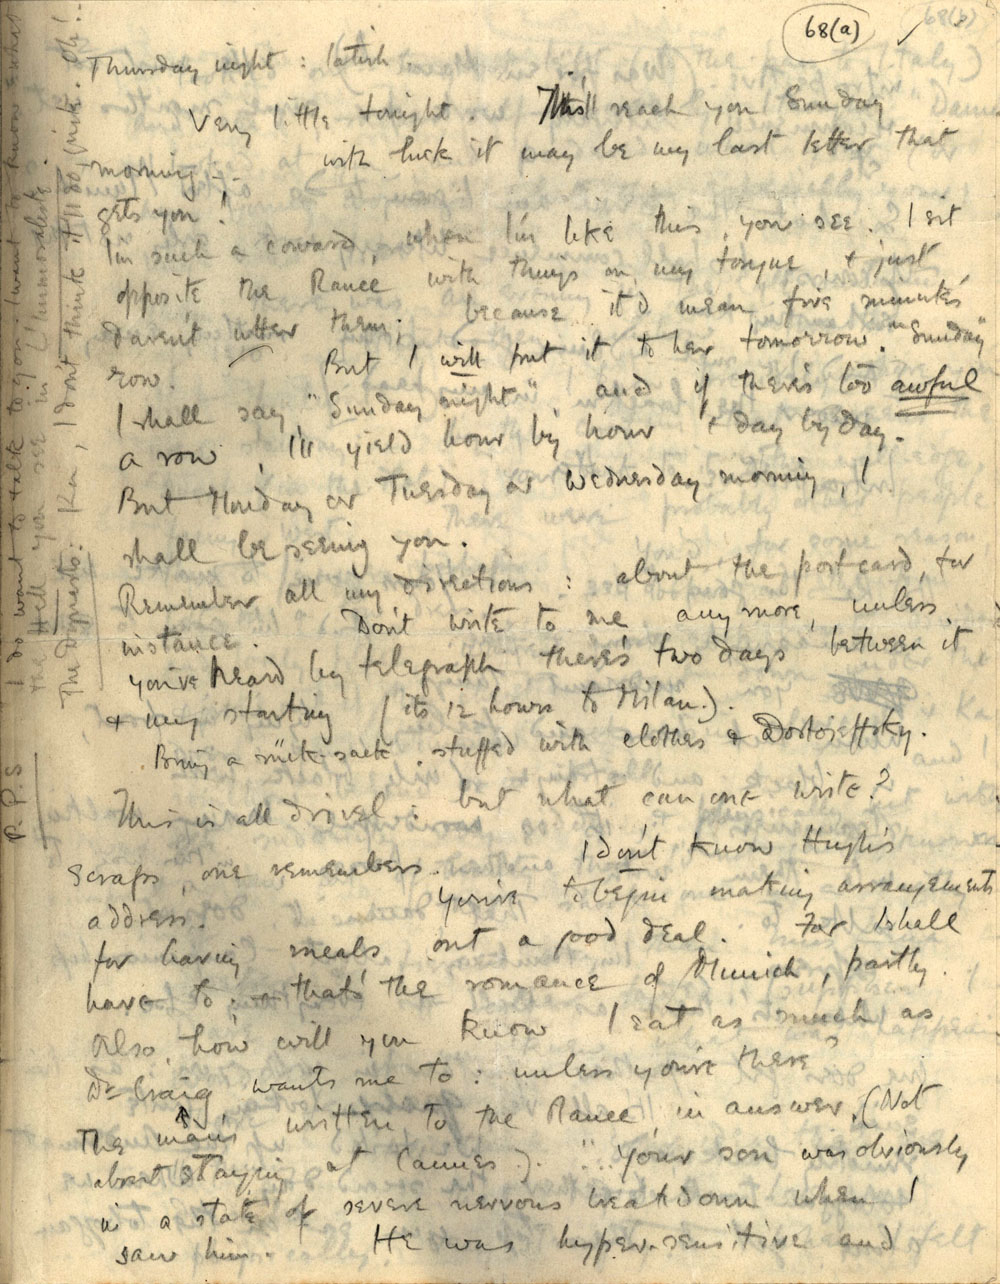 68(a)
68(b)
Thursday night : latish.
Very little tonight. This'll reach you Sunday
morning -:- with luck it may be my last letter that
gets you!
I'm such a coward, when I'm like this, you see. I sit
opposite the Ranee with things on my tongue, & just
daren't utter them; because it'd mean five minutes'
row. But I will put it to her tomorrow. "Sunday"
I shall say, "Sunday night" and if there's too awful
a row, I'll yield hour by hour & day by day.
But Monday or Tuesday or Wednesday morning, I
shall be seeing you.
Remember all my directions: about the postcard, for
instance. Don't write to me any more, unless
you've heard by telegraph there's two days between it
& my starting (its 12 hours to Milan.).
Bring a rück-sack, stuffed with clothes & Dostoieffsky.
This is all drivel: but what can one write?
Scraps, one remembers. I don't know Hugh's
address. You're to begin making arrangements
for having meals out a good deal. For I shall
have to; & that's the romance of Munich, partly.
Also, how will you know I eat as much as
Dr Craig wants me to: unless you're there?
The man's written to the Ranee, in answer, (Not
about staying at Cannes). "... Your son was obviously
in a state of severe nervous breakdown when I
saw him. He was hyper-sensitive and
P.P.S I do want to talk to you. I want to know what
the Hell you see in
The Deposito: Ka, I don't think it'll do, quite.